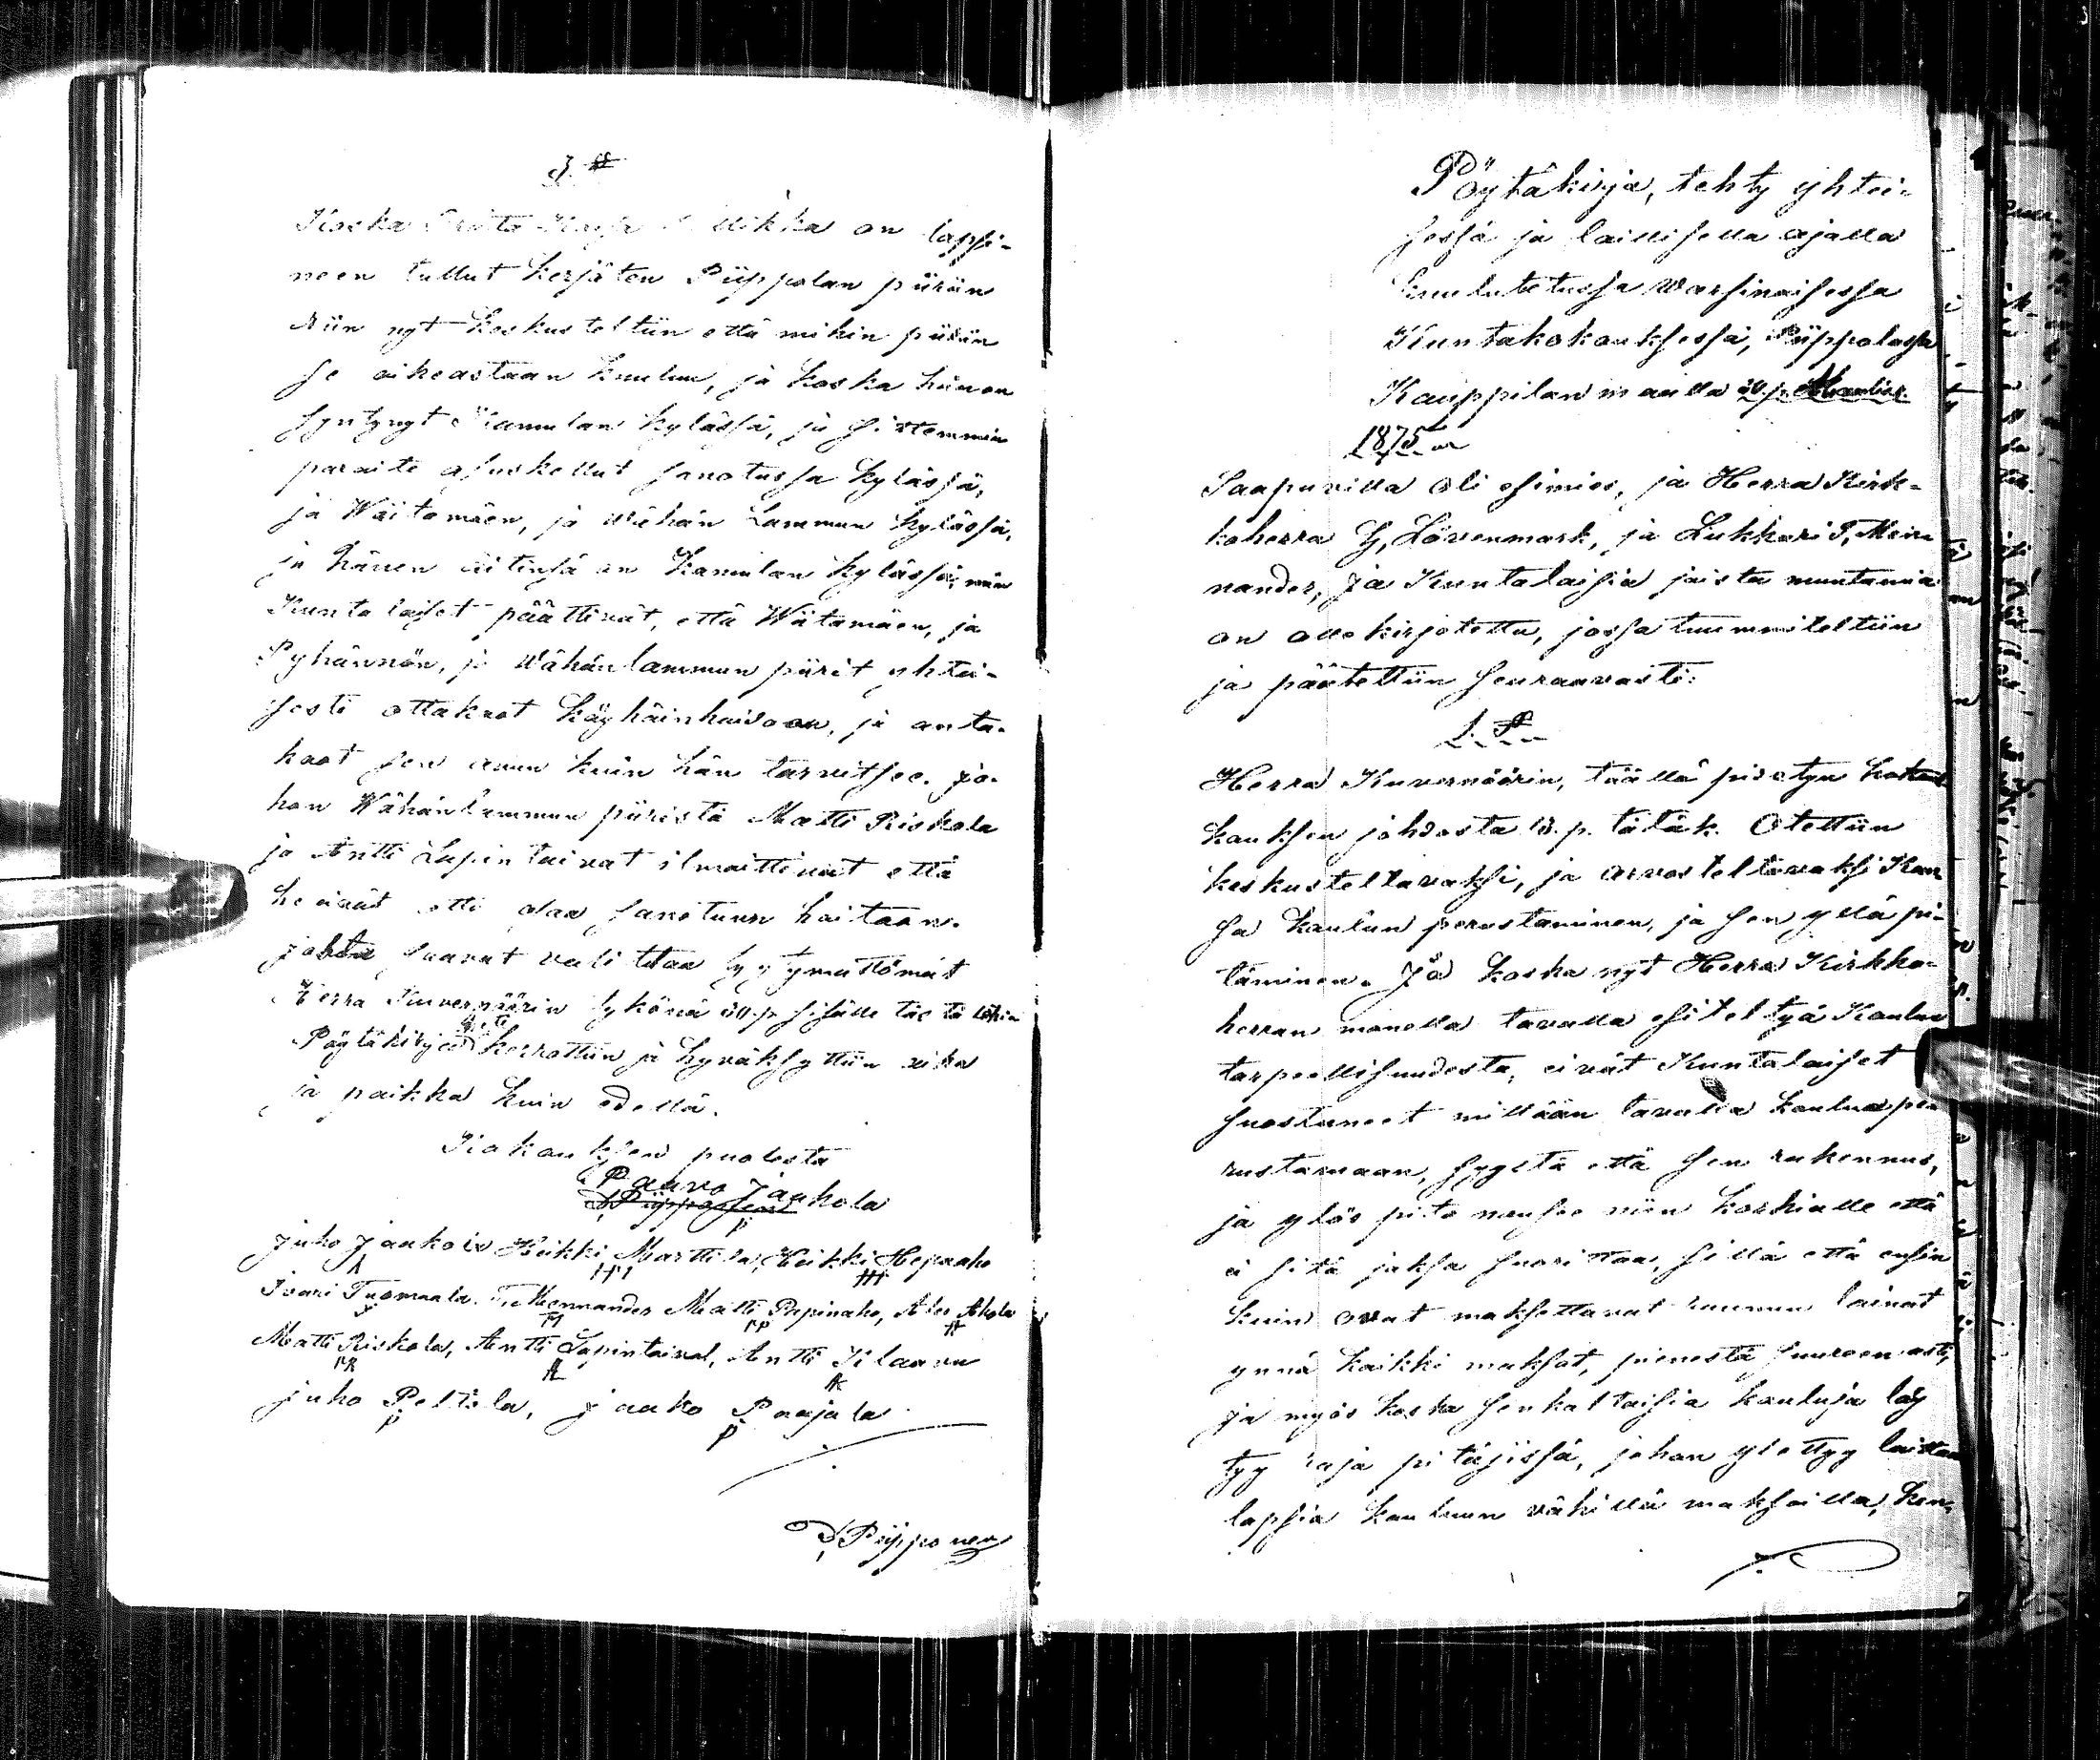 3. §
Koska on lapsi-
neen tullut kerjäten Piippolan piiriin
niin nyt keskusteltiin että mihin piiriin
se oikeastaan kuuluu, ja koska hän on
syntynyt Kamulan kylässä, ja sittemmin
paraite asuskellut sanotussa kylässä,
ja Wäitämäen, ja Wähän Lammun kylässä,
ja hänen äitinsä on Kamulan kylässä, niin
Kuntalaiset päättivät, että Wiitamäen, ja
Pyhännön, ja Wähänlammun piirit yhtei-
sesti ottakoot köyhäinhoidoon, ja anta-
koot sen avun kuin hän tarvitsee. jo-
hon Wähänlammun piiristä Matti Riskola
ja Antti Lapintaivat ilmoittivat että
he eivät otti osaa sanotuun hoitoon.
johta saavat valittaa tyytymättömät
Herra Kuvernöörin tykönä 30. p. sisälle täs tä lähin
Pöytäkirja kerrottiin ja hyväksyttiin aika
ja paikka kuin edellä.
Kokouksen puolesta
Paavo Jaukola
D, Piipponen
Juho Jaakola Heikki Marttila, Heikki Hepoaho
Ivari Tuomaala. Mennander Matti Papinaho, Ahola
Matti Riskola, Antti Lapintaival, Antti Kilaavu
juho Peltola, jaako Paajala
D, Piipponen
Pöytäkirja, tehty yhtei-
sessä ja laillisella ajalla
kuulutetussa warsinaisessa
Kuntakokouksessa, Piippolassa
Kauppilan maalla 20. p.
1875
Saapuvilla oli esimies, ja Herra Kirk-
koherra G, Lövenmark, ja Lukkari T, Men
nander, ja Kuntalaisia joista muutamia
on allekirjotettu, jossa tuumniteltiin
ja päätettiin seuraavasti:
1. §
Herra Kuvernöörin, täällä pidetyn
kouksen johdosta 13. p. tätäk. Otettiin
keskusteltavaksi, ja arvosteltavaksi Kan
sa koulun perustaminen, ja sen yllä pi-
täminen. Ja koska nyt Herra Kirkko-
herran monella tavalla esiteltyä Koulun
tarpeellisuudesta, eivät Kuntalaiset
suostuneet millään tavalla koulua pe
rustamaan, syystä että sen rakennus,
ja ylös pito nousee niin korkialle että
ei sitä jaksa suorittaa, sillä että ensin
kuin ovat maksettavat ruunun lainat
ynnä kaikki maksot, pienestä suureen asti,
ja myös koska senkaltaisia kouluja löy
tyy raja pitäjissä, johon ylettyy laittaa
lapsia kouluun vähillä maksoilla, ken-